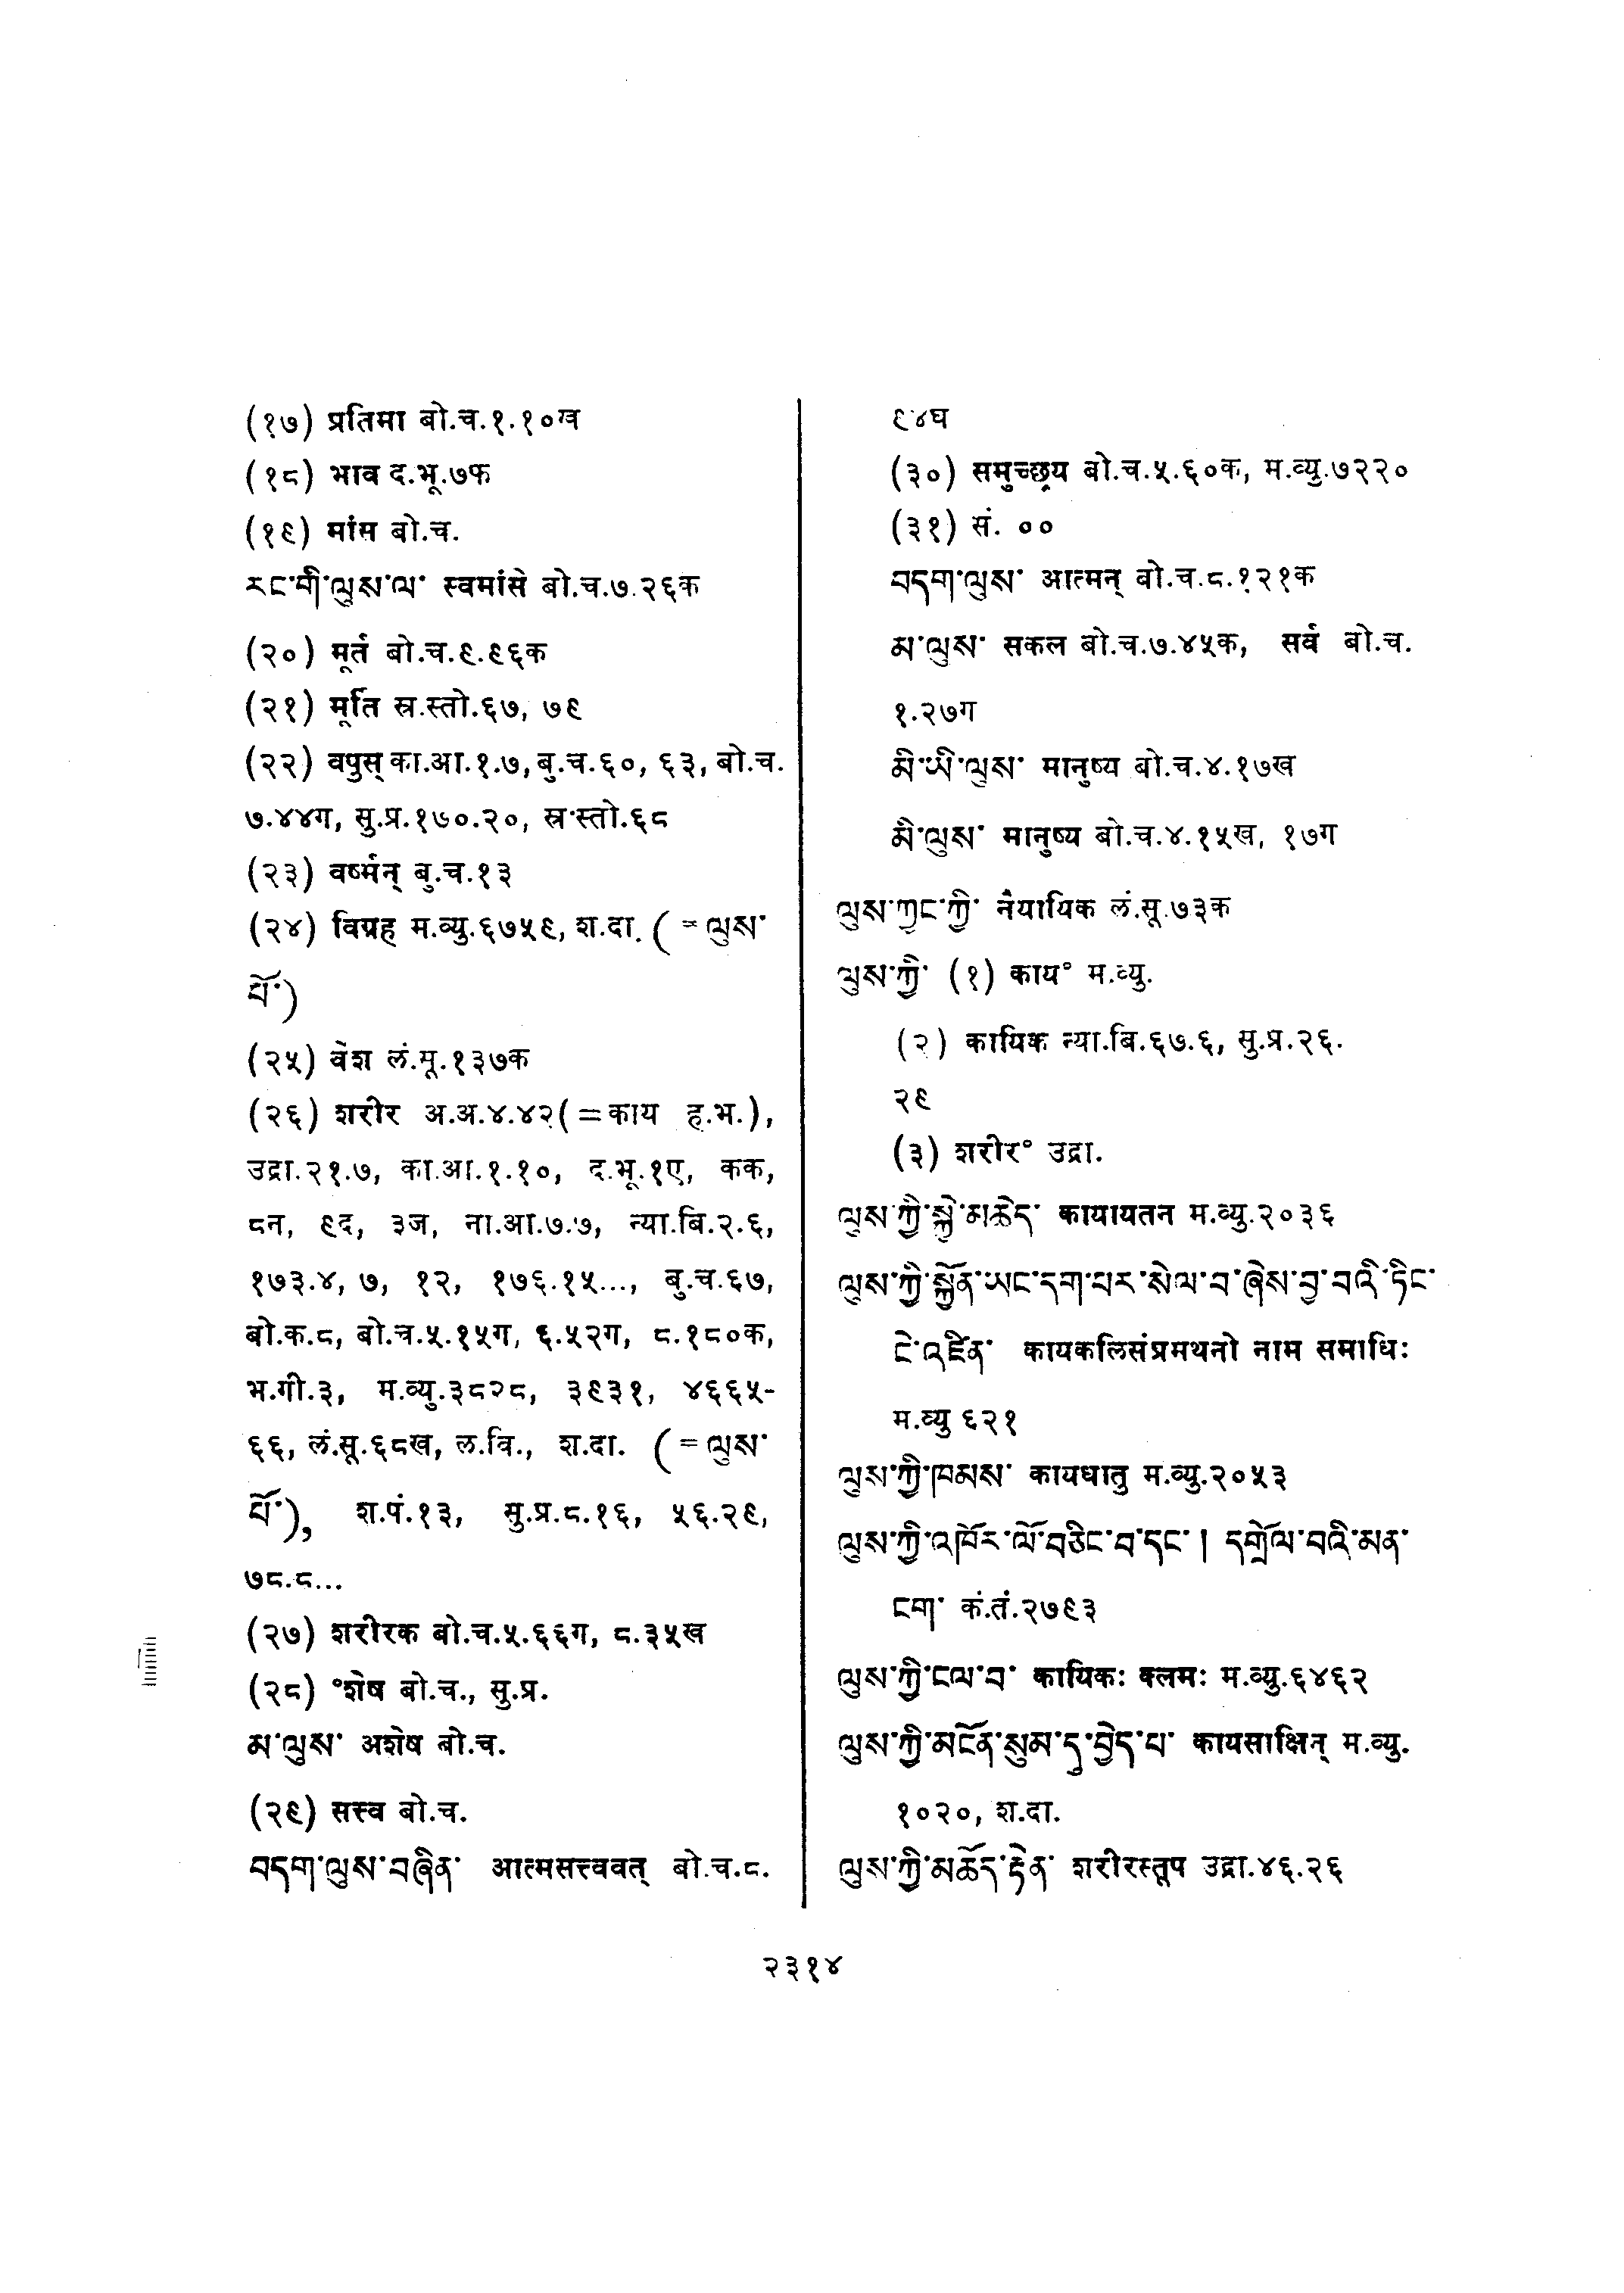 (१७) प्रतिमा बो.च.१.१०ख
(१८) भाव द.भू.७फ
(१९) मांस बो.च.
རང་གི་ལུས་ལ་ स्वमांसे बो.च.७.२६क
(२०) मूर्त बो.च.९.९६क
(२१) मूर्ति स्र.स्तो.६७, ७९
(२२) वपुस् का.आ.१.७, बु.च.६०, ६३, बो.च.
७.४४ग, सु.प्र.१७०.२०, स्र.स्तो.६८
(२३) वर्ष्मन् बु.च.१३
(२४) विग्रह म.व्यु.६७५९, श.दा. (=ལུས་
པོ་)
(२५) वेश लं.सू.१३७क
(२६) शरीर अ.अ.४.४२(=काय ह.भ.),
उद्रा.२१.७, का.आ.१.१०, द.भू.१ए, कक,
८न, ९द, ३ज, ना.आ.७.७, न्या.बि.२.६,
१७३.४, ७, १२, १७६.१५..., बु.च.६७,
बो.क.८, बो.च.५.१५ग, ६.५२ग, ८.१८०क,
भ.गी.३, म.व्यु.३८२८, ३९३१, ४६६५-
६६, लं.सू.६८ख, ल.वि., श.दा. (=ལུས་
པོ་), श.पं.१३, सु.प्र.८.१६, ५६.२९,
७८.८...
(२७) शरीरक बो.च.५.६६ग, ८.३५ख
(२८) °शेष बो.च., सु.प्र.
མ་ལུས་ अशेष बो.च.
(२९) सत्त्व बो.च.
བདག་ལུས་བཞིན་ आत्मसत्त्ववत् बो.च.८.
९४घ
(३०) समुच्छ्रय बो.च.५.६०क, म.व्यु.७२२०
(३१) सं. ००
བདག་ལུས་ आत्मन् बो.च.८.१२१क
མ་ལུས་ सकल बो.च.७.४५क, सर्व बो.च.
१.२७ग
མི་ཡི་ལུས་ मानुष्य बो.च.४.१७ख
མི་ལུས་ मानुष्य बो.च.४.१५ख, १७ग
ལུས་ཀྱང་ཀྱི་ नैयायिक लं.सू.७३क
ལུས་ཀྱི་ (१) काय° म.व्यु.
(२) कायिक न्या.बि.६७.६, सु.प्र.२६.
२९
(३) शरीर° उद्रा.
ལུས་ཀྱི་སྐྱེ་མཆེད་ कायायतन म.व्यु.२०३६
ལུས་ཀྱི་སྐྱོན་ཡང་དག་པར་སེལ་བ་ཞེས་བྱ་བའི་ཏིང་
ངེ་འཛིན་ कायकलिसंप्रमथनो नाम समाधिः
म.व्यु ६२१
ལུས་ཀྱི་ཁམས་ कायधातु म.व्यु.२०५३
ལུས་ཀྱི་འཁོར་ལོ་བཅིང་བ་དང་། དགྲོལ་བའི་མན་
ངག་ कं.तं.२७९३
ལུས་ཀྱི་ངལ་བ་ कायिकः क्लमः म.व्यु.६४६२
ལུས་ཀྱི་མངོན་སུམ་དུ་བྱེད་པ་ कायसाक्षिन् म.व्यु.
१०२०, श.दा.
ལུས་ཀྱི་མཆོད་རྟེན་ शरीरस्तूप उद्रा.४६.२६
२३१४